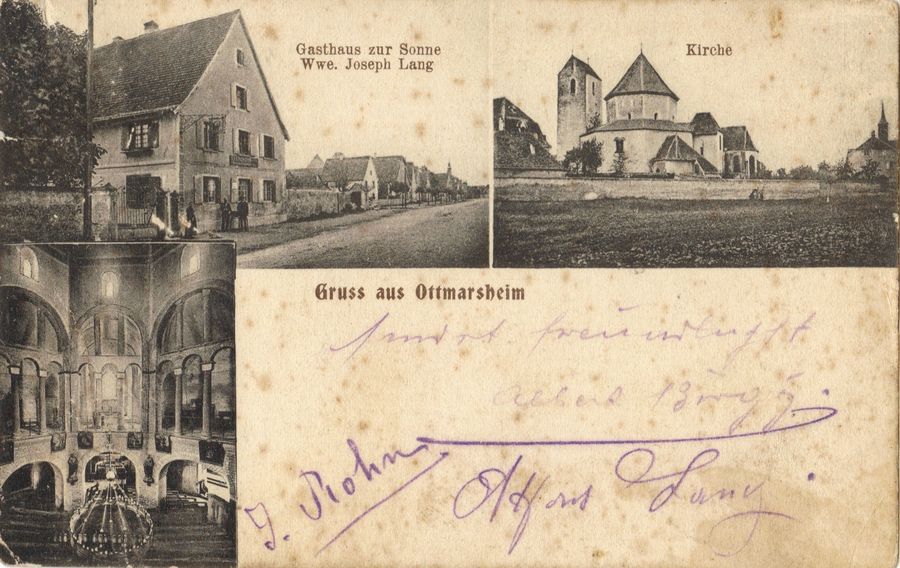 Gasthaus zur Sonne
Wwe. Joseph Lang
Kirche
Gruss aus Ottmarsheim
sendet freundlichst
Albert Bürgy.
J. Rohn
Alfons Lang